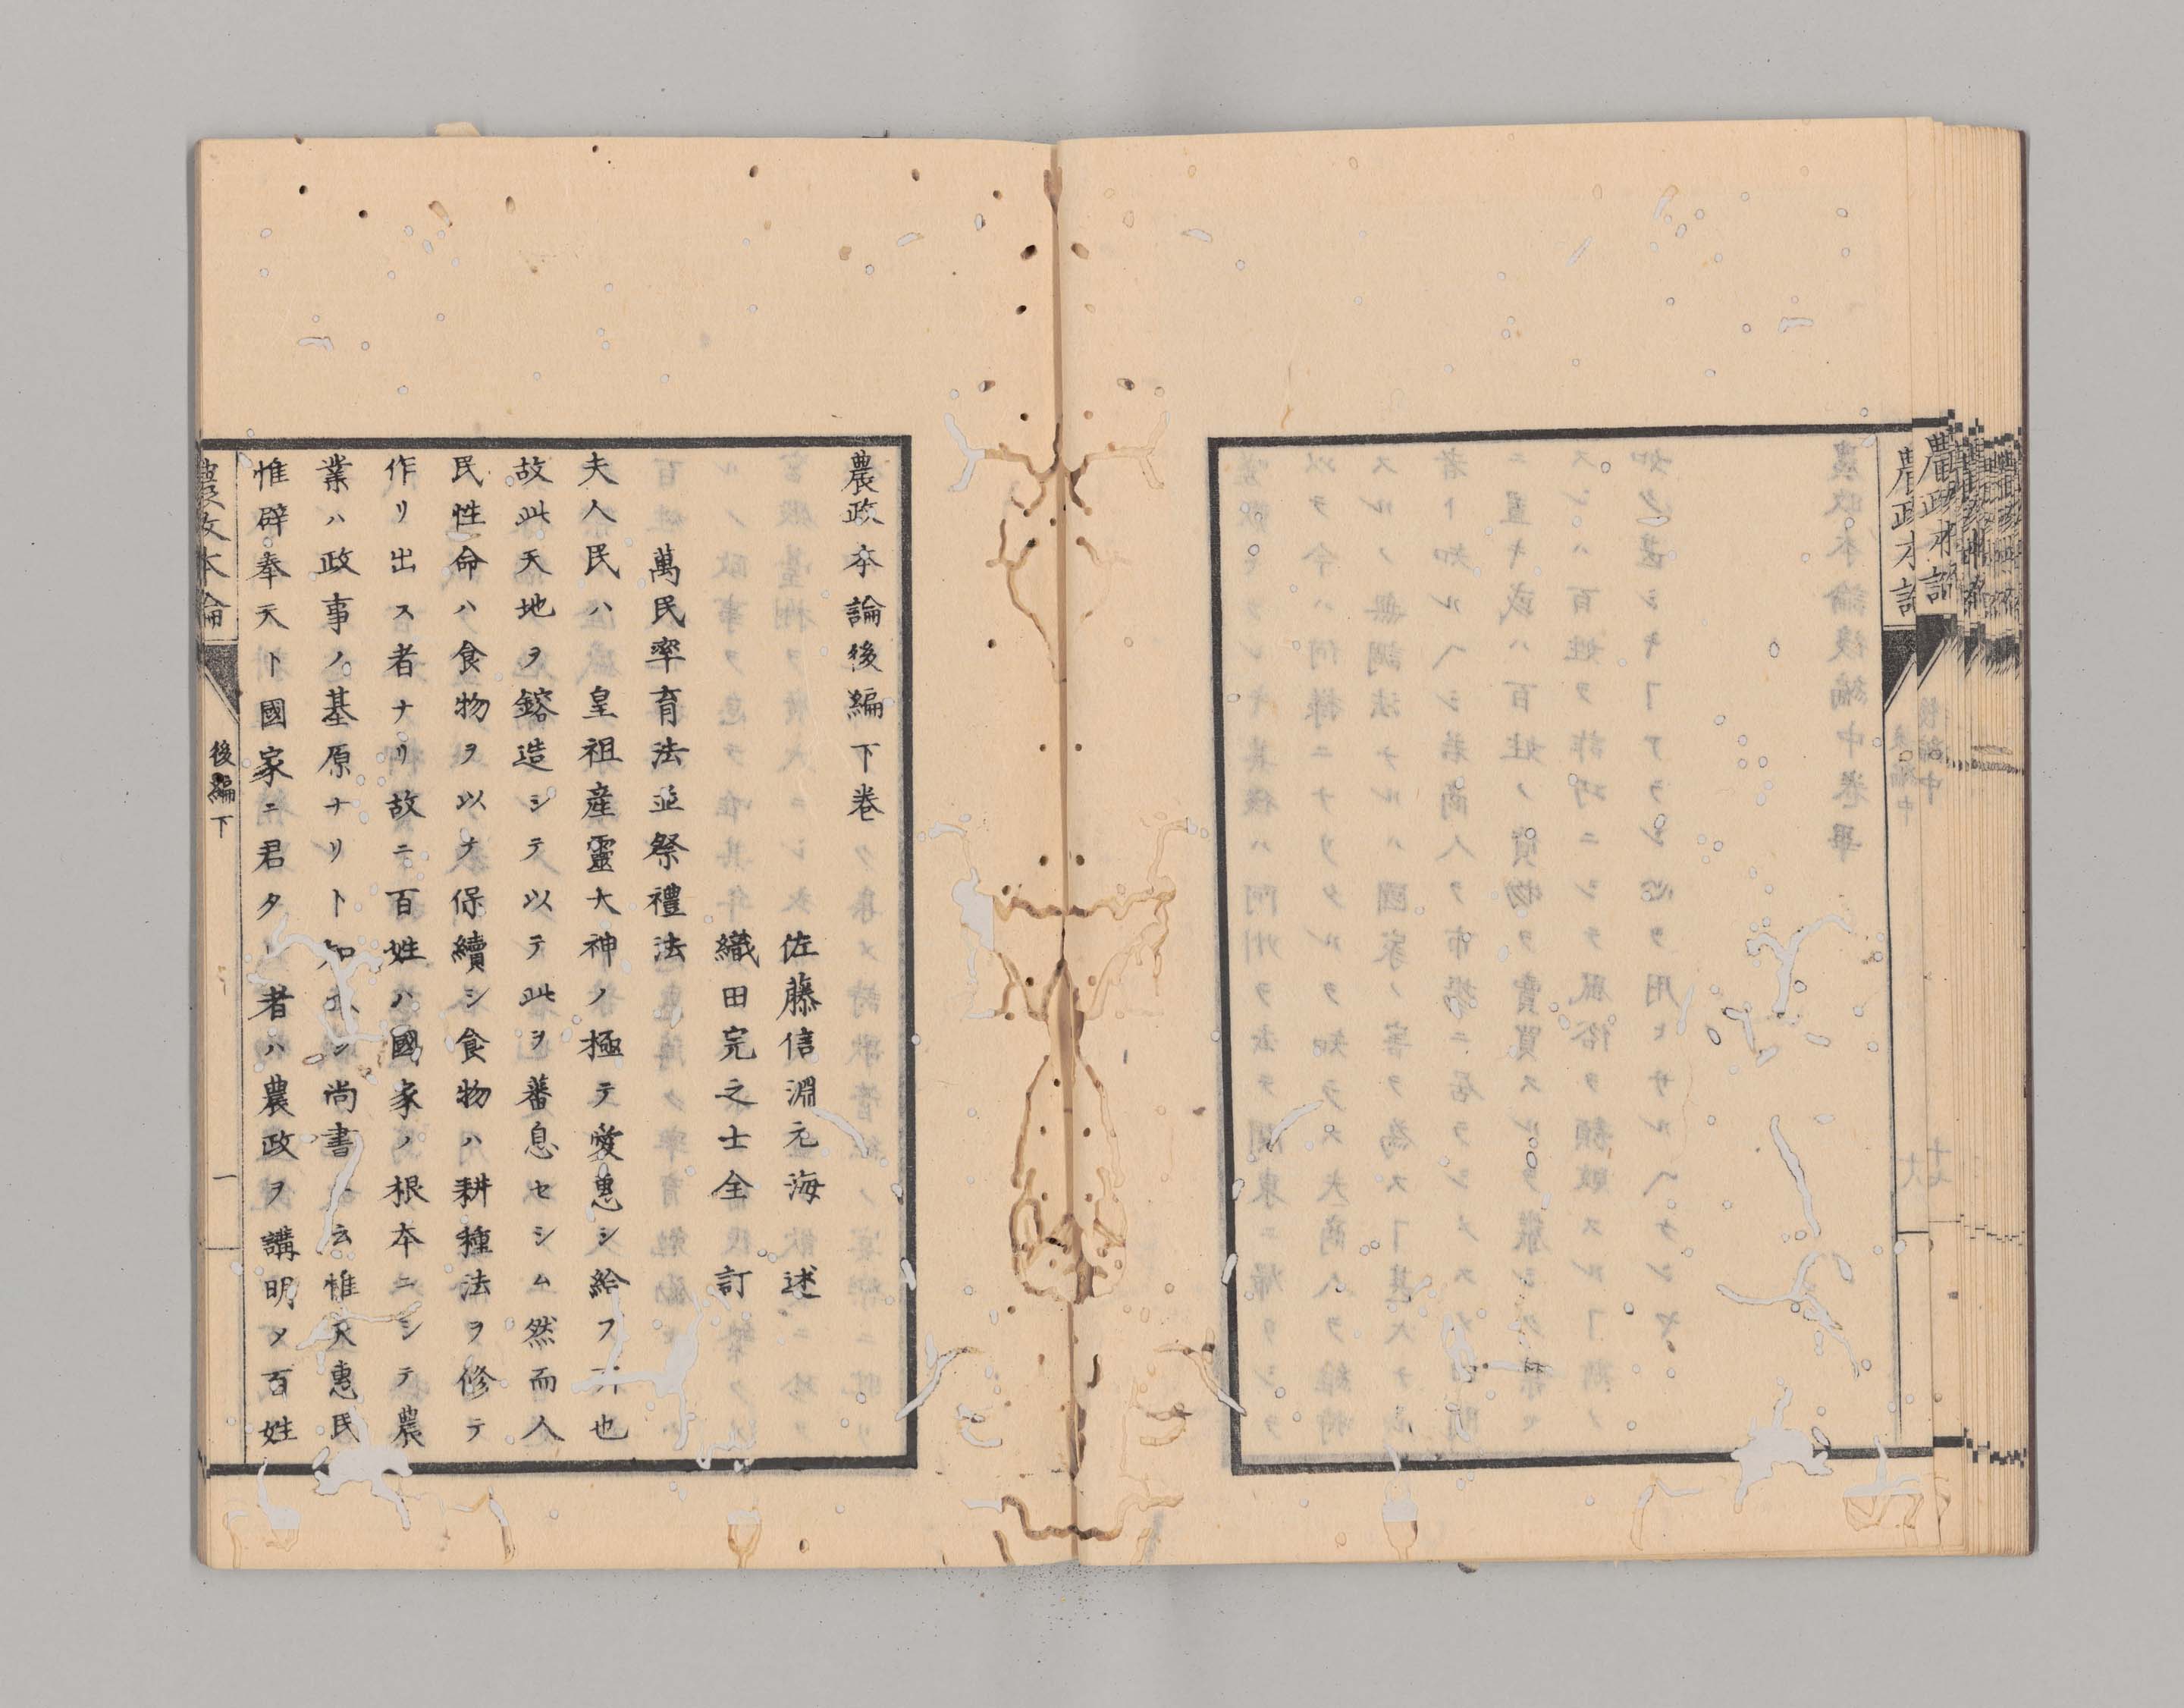 農政本論後編下卷
佐藤信淵元海 述
織田完之士全 訂
萬民率育法並祭禮法
夫人民ハ皇祖産靈大神ノ極テ愛惠シ給フ所也
故此天地ヲ鎔造シテ以テ此ヲ蕃息セシム然而人
民性命ハ食物ヲ以テ保續シ食物ハ耕種法ヲ修テ
作リ出ス者ナリ故ニ百姓ハ國家ノ根本ニシテ農
業ハ政事ノ基原ナリト知ヘシ尚書ニ云惟天惠民
惟辟奉天ト國家ニ君タル者ハ農政ヲ講明メ百姓
農政本論
後編下
一